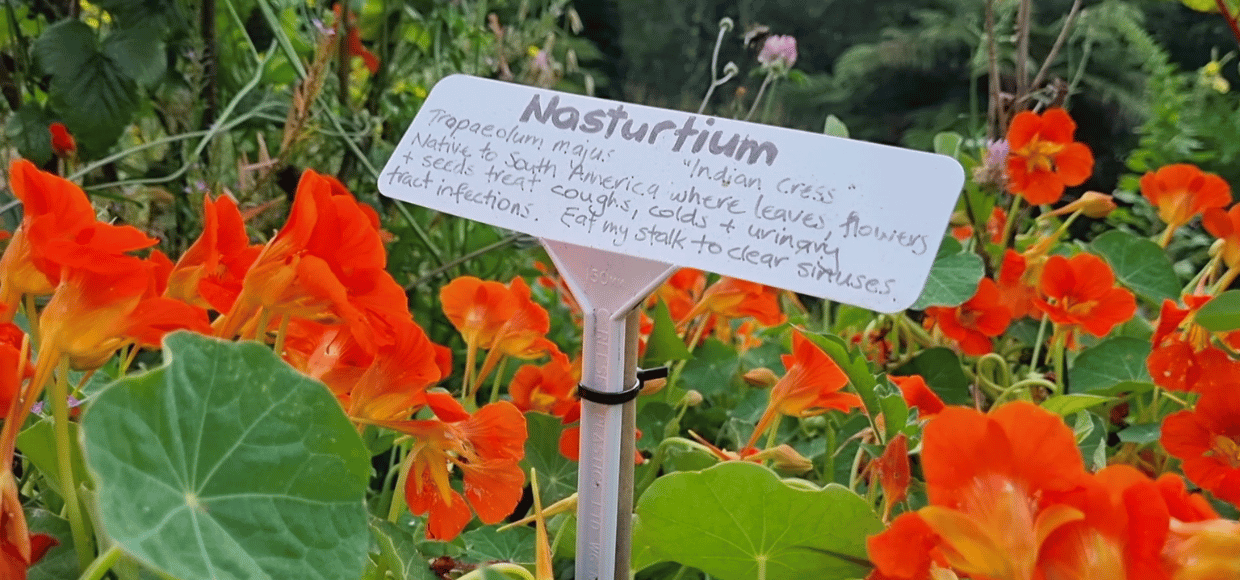 Nasturtium
Trapaeolum majus "Indian Cress"
Native to South America where leaves, flowers
+ seeds treat coughs, colds + urinary
tract infections. Eat my stalk to clear sinuses.